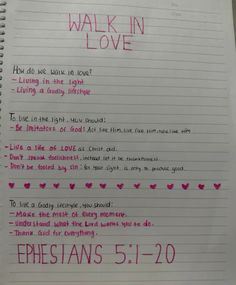 WALK IN
LOVE
How do we walk in love?
- Living in the light
- Living a Godly lifestyle
To live in the light, you should:
- Be Imitators of God! Act like Him, live like Him, love like Him
- Live a life of LOVE as Christ did.
- Don't speak foolishness, instead let it be thankfulness.
- Don't be fooled by sin: for your light is only to produce good.
To live a Godly lifestyle, you should:
- Make the most of every moment.
- Understand what the Lord wants you to do.
- Thank God for everything.
EPHESIANS 5:1-20